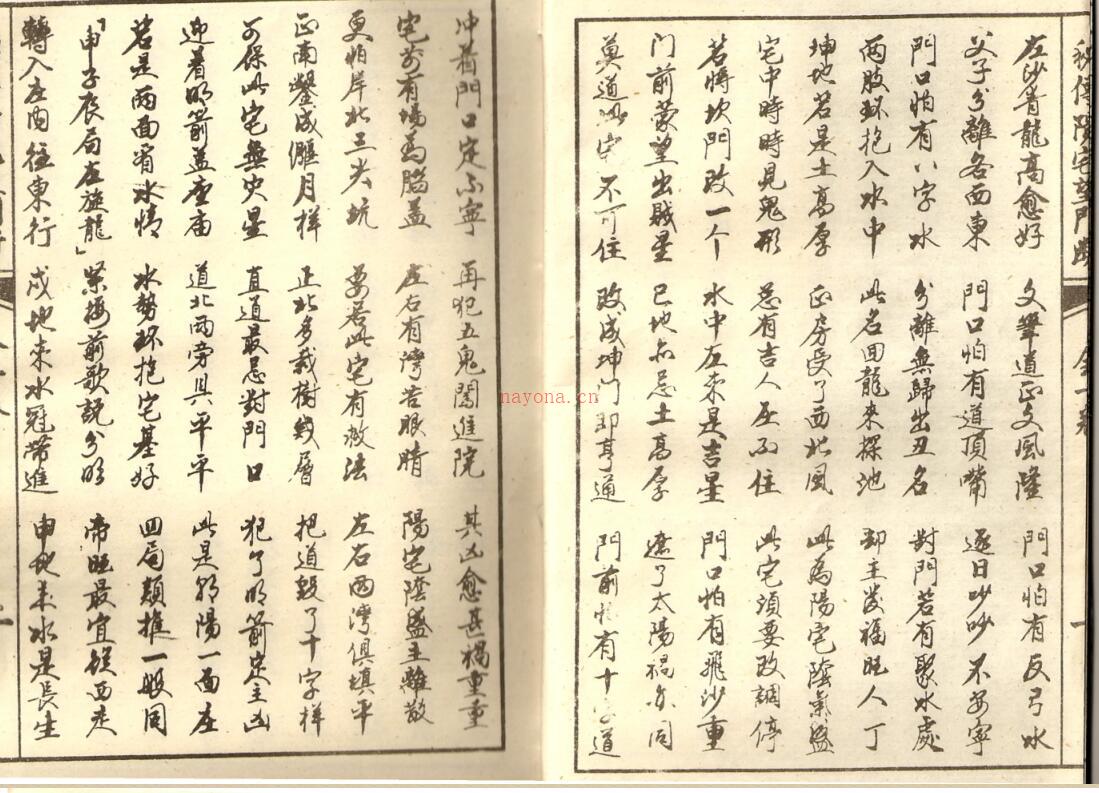 秘傳陽宅望門斷
全一卷
左沙青龍高愈好 文筆道正文風隆 門口怕有反弓水
父子分離各西東 門口怕有道頂帶 逐日吵吵不安寧
門口怕有八字水 分離無歸出丑名 對門若有聚水處
两肢环抱入水中 此名回龍來探池 却主发福旺人丁
坤地若是土高厚 正房受了西北風 此為陽宅陰氣盛
宅中時時見鬼形 总有吉人压不住 此宅須要改調停
若將坎門改一个 水中左来是吉星 門口怕有飛沙重
门前蒙望出贼星 巳地亦忌土高厚 遮了太陽禍亦同
莫道此宅不可住 改成坤门即亨通 門前怕有十字道
冲着門口定不寧 再犯五鬼闖進院 其凶愈甚禍重重
宅前有場為腦蓋 左右有灣若眼睛 陽宅陰盛主離散
更怕岸北三尖坑 要若此宅有救法 左右两灣俱填平
正南鑿成偃月样 正北多栽樹幾層 把道毀了十字样
可保此宅無灾星 直道最忌對門口 犯了明箭定主凶
迎着明箭盖座庙 道北两旁具平平 此是邻陽一面座
若是两面有水情 水势环抱宅基好 四局類推一般同
「申子辰局左旋龍」 紧接前歌説分明 帝旺最宜從西走
轉入庄内往東行 戌地来水冠帶進 申地来水是長生
nayona.cn